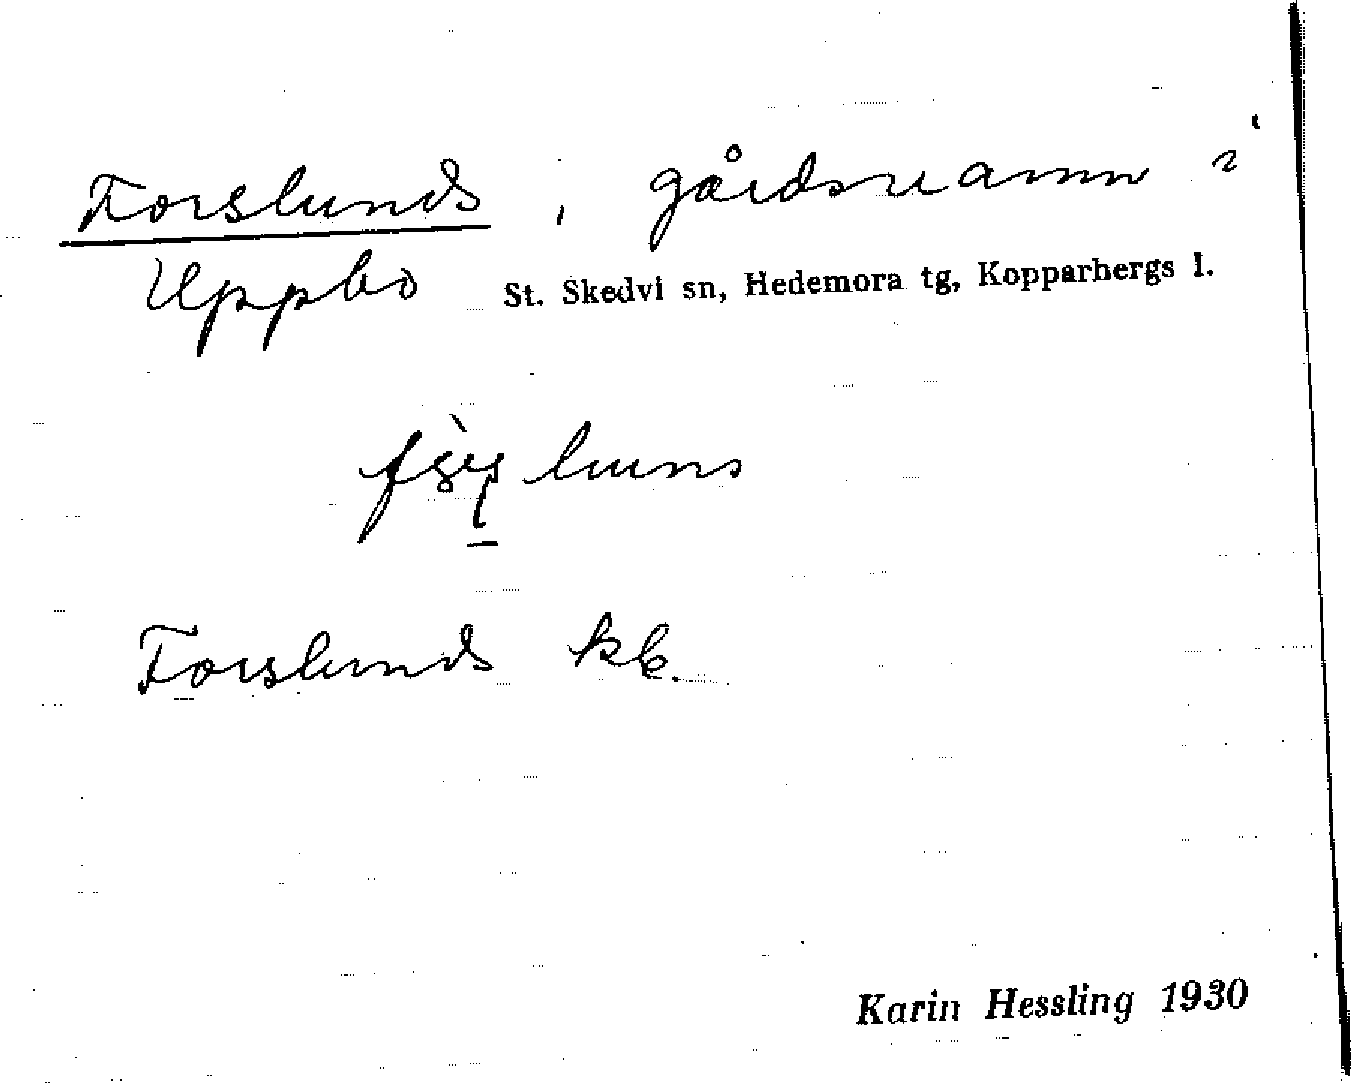 Forslunds, gårdsnamn i
Uppbo St. Skedvi sn, Hedemora tg, Kopparbergs l.
Forslunds kb.
Karin Hessling 1930